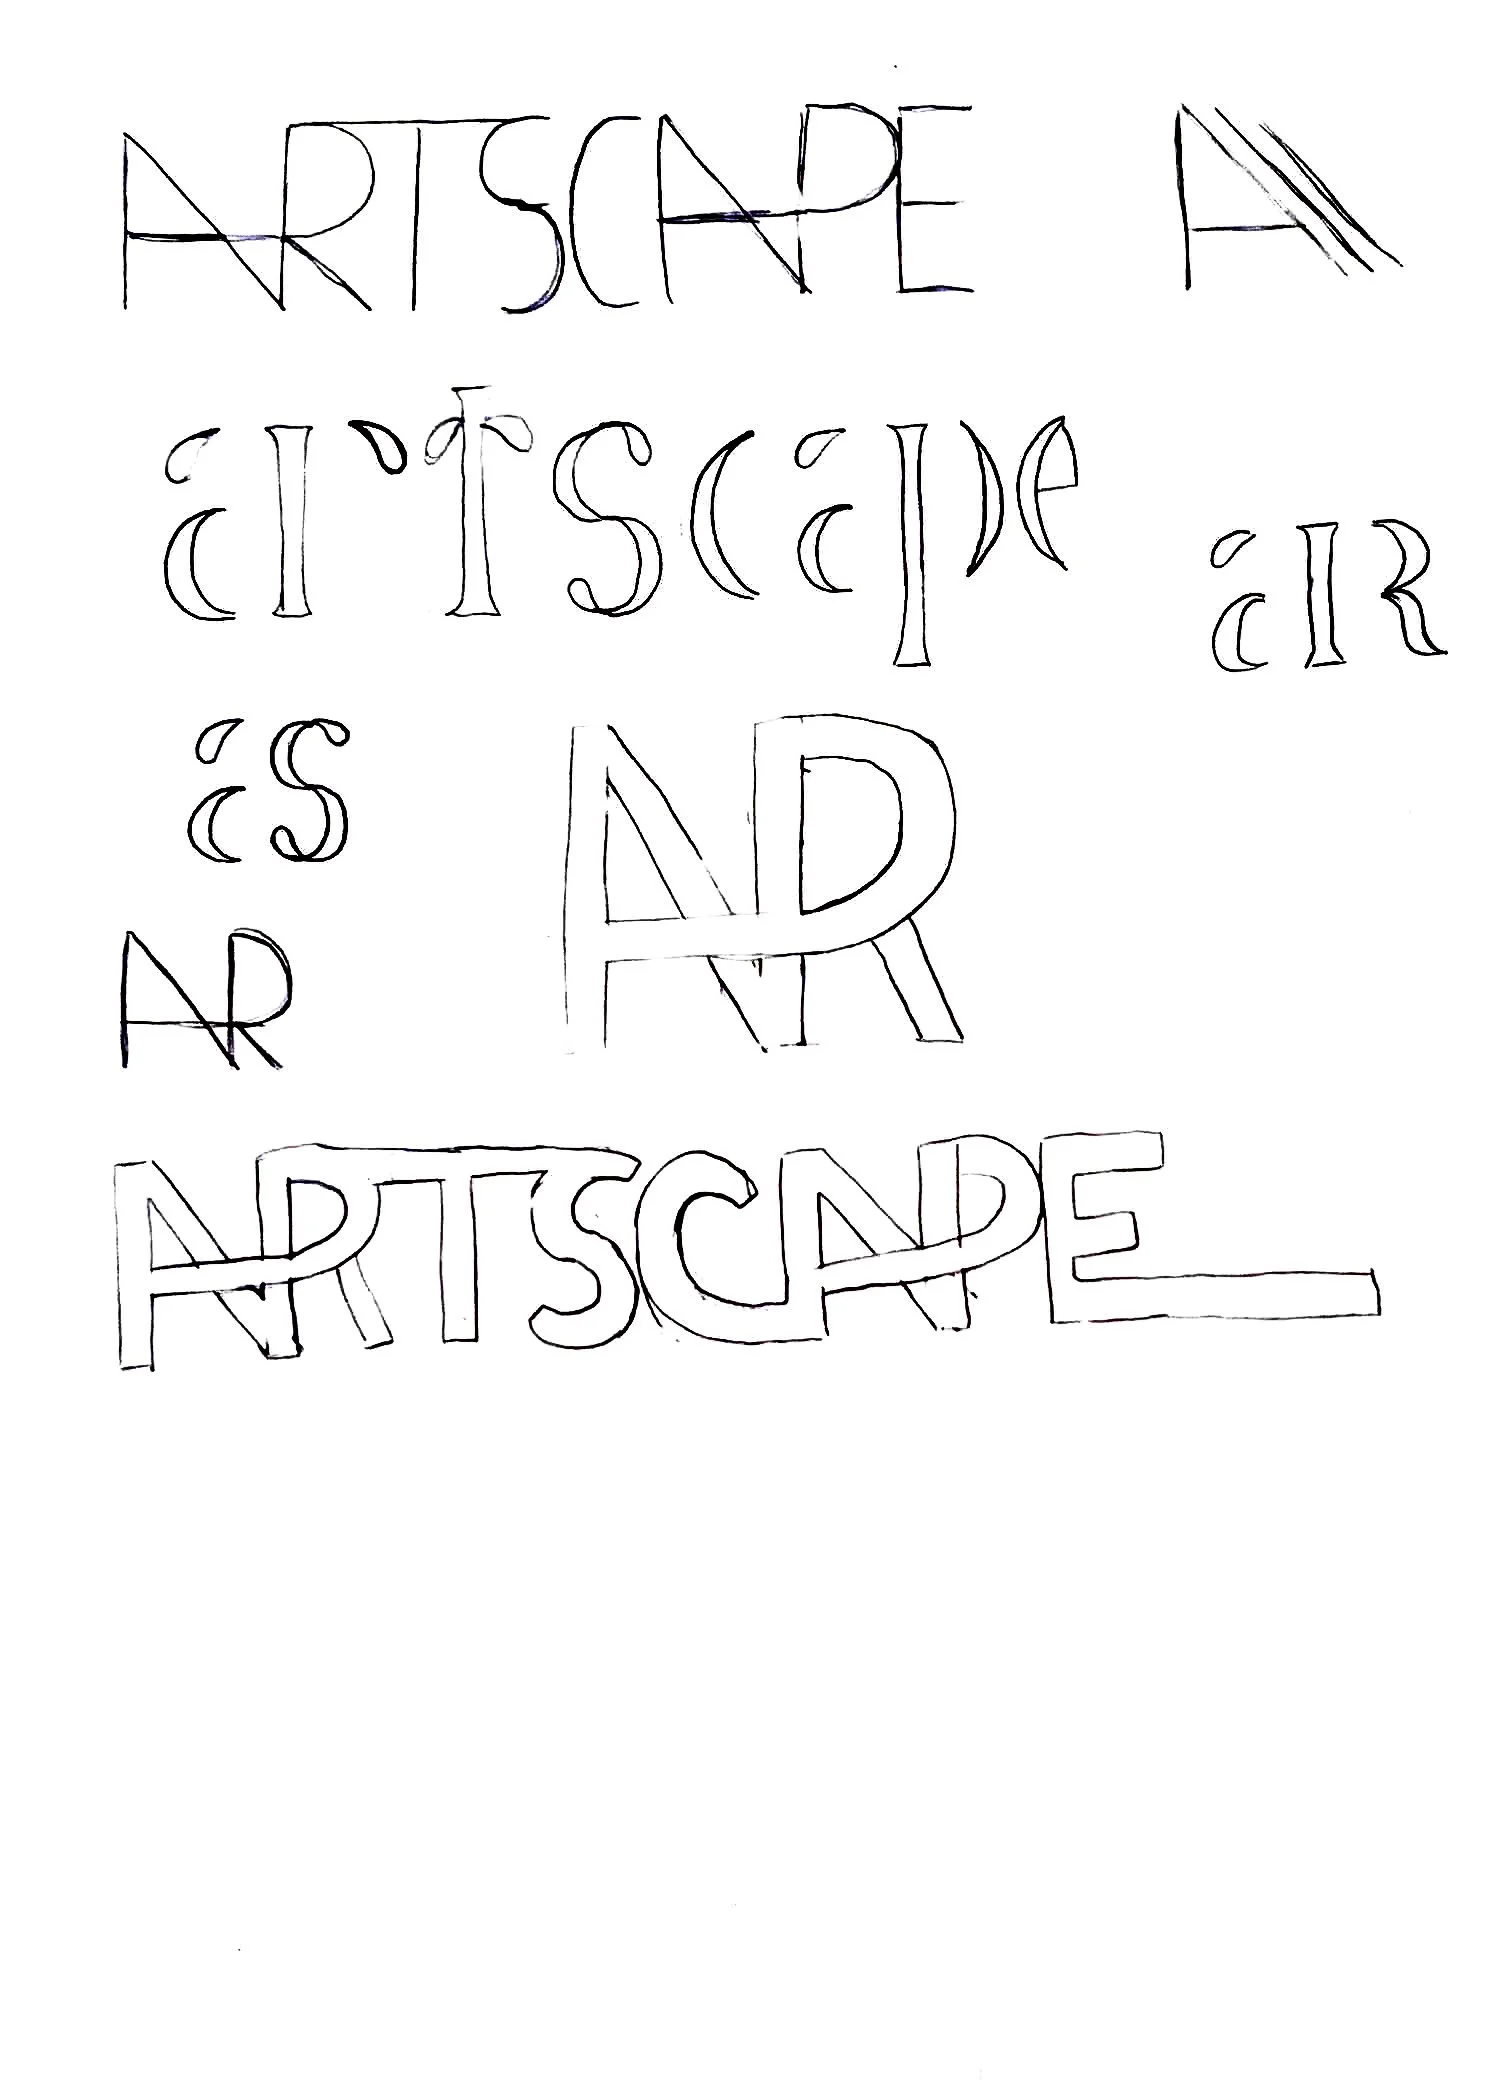 ARTSCAPE A
artscape
aIR
as AR
AR
ARTSCAPE